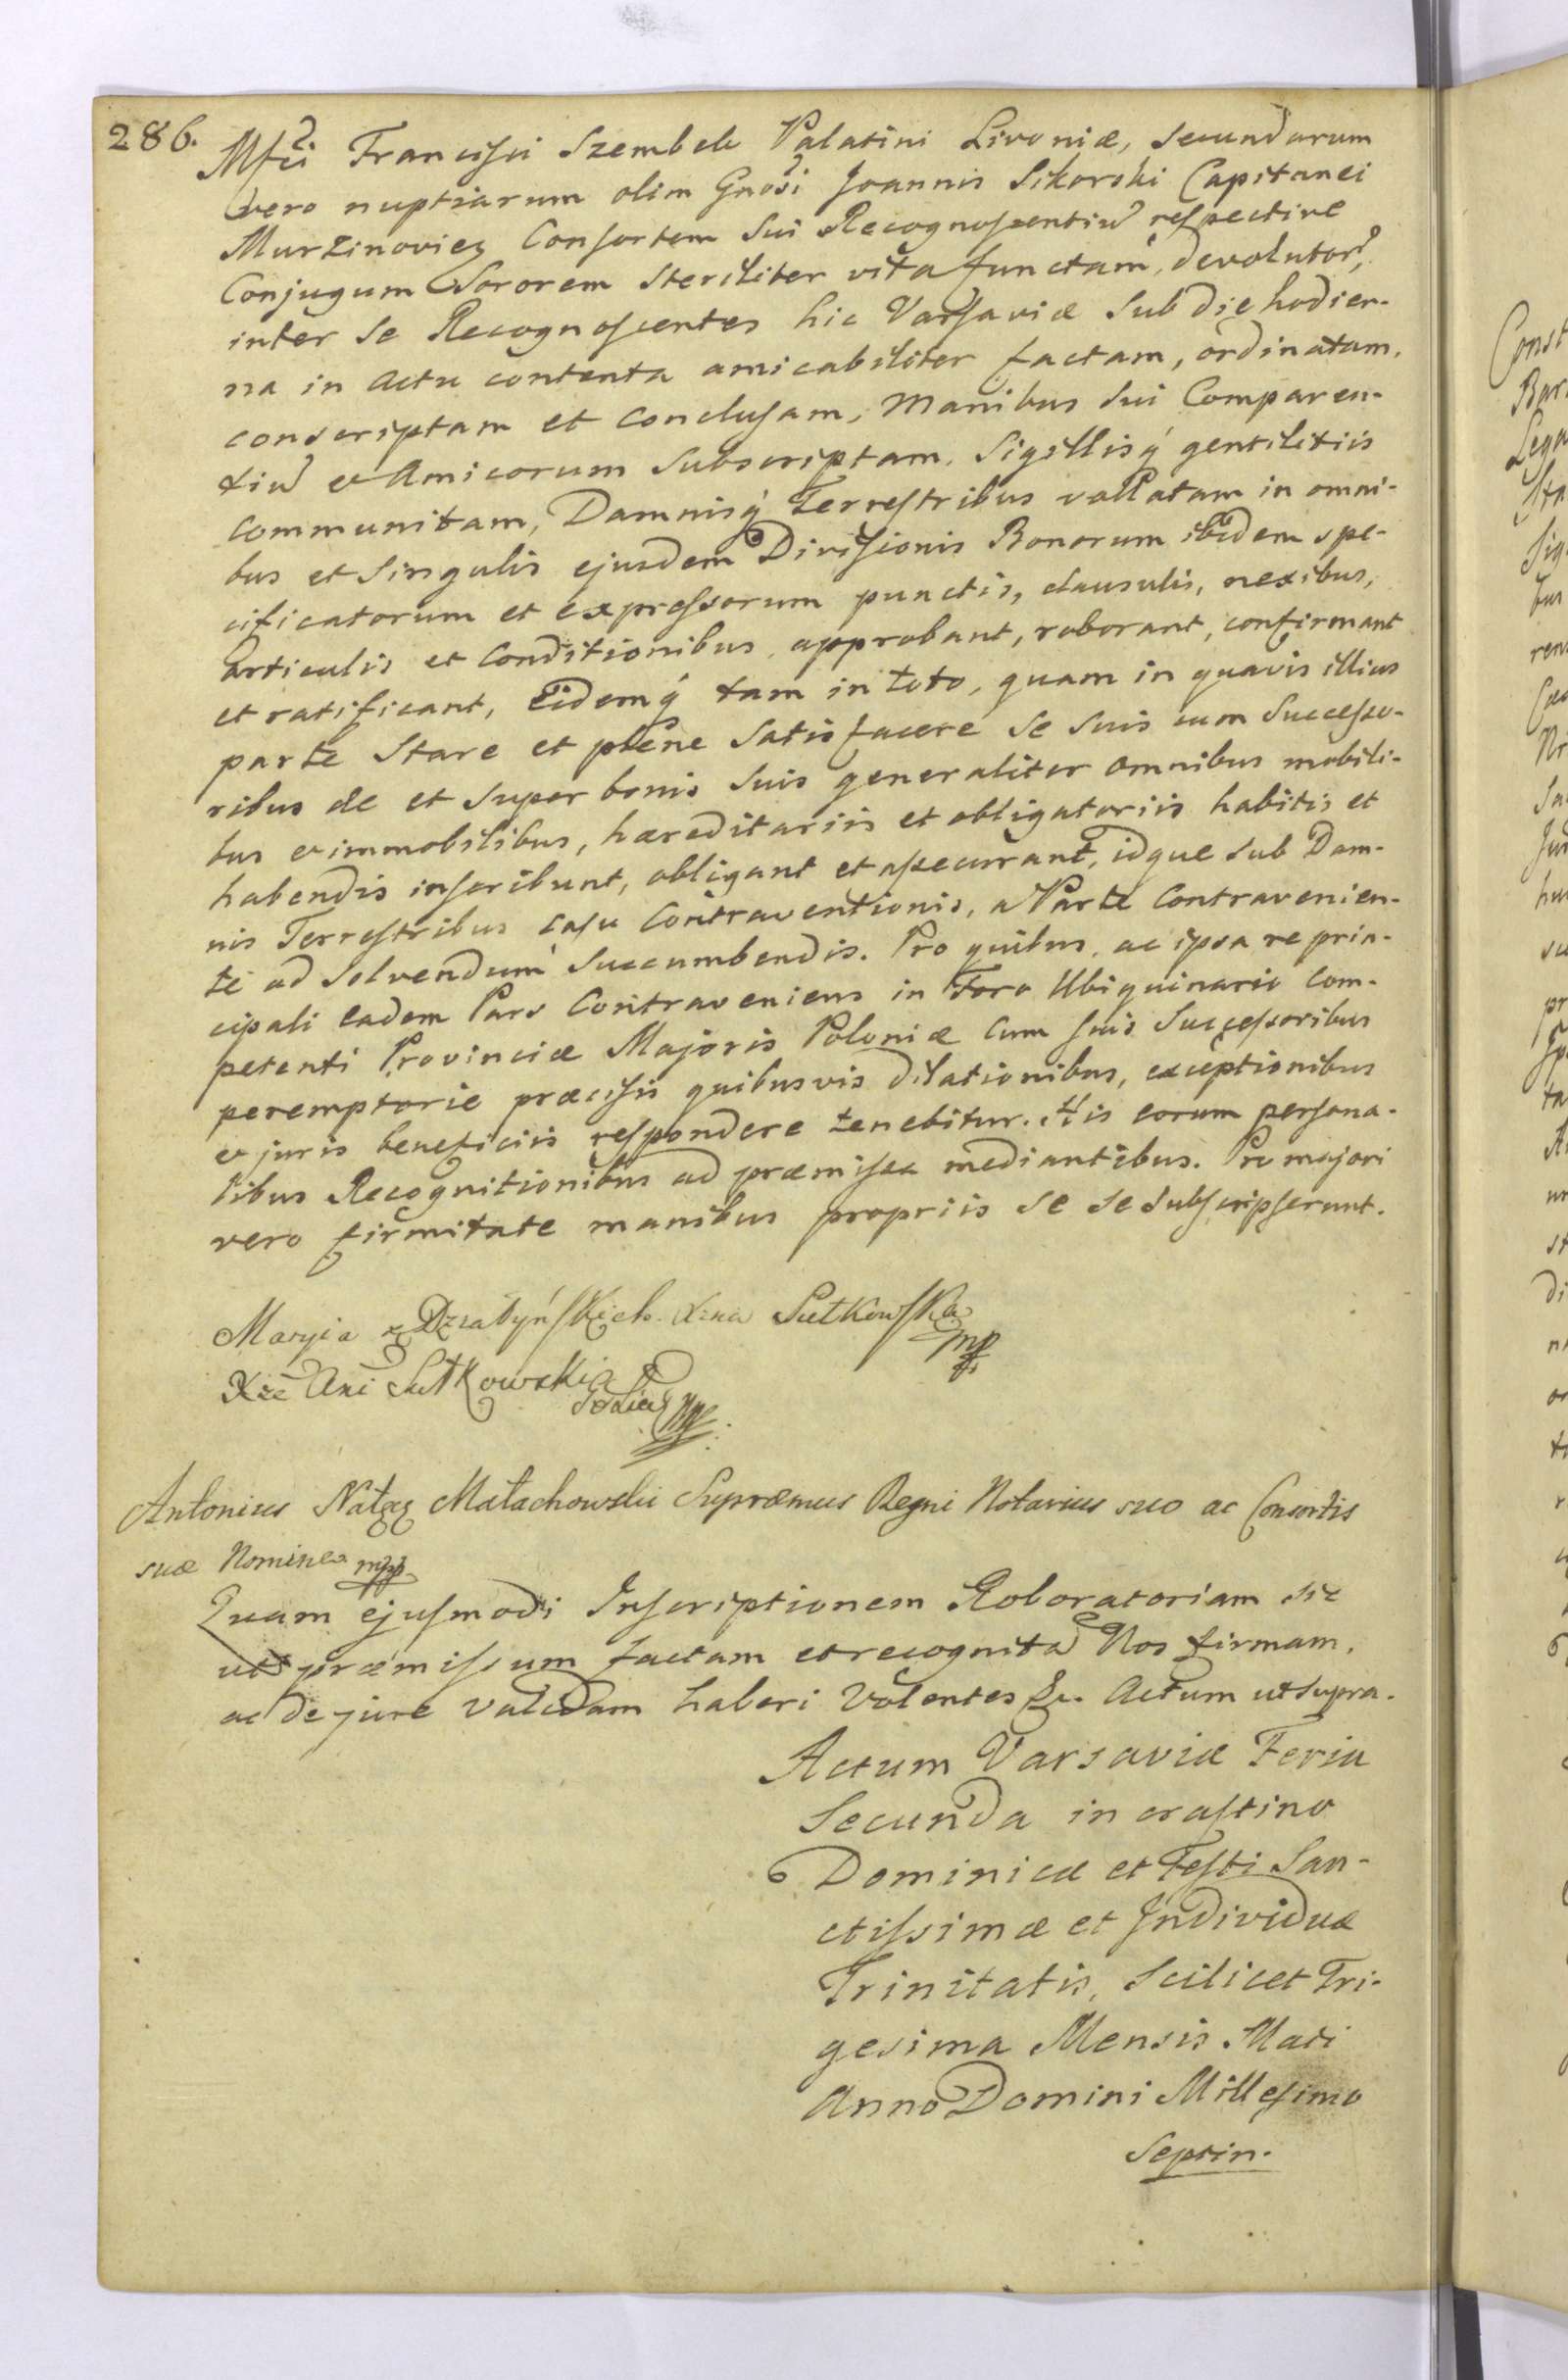 286.
Mfci Francisci Szembek Palatini Livoniæ, secundarum
vero nuptiarum olim Gnosi Joannis Sikorski Capitanei
Murzinoviez Consortem sui Recognoscentiu respective
Conjugum Sororem steriliter vita functam, devolutor,
inter se Recognoscentes hic Varsaviæ sub die hodier-
na in actu contenta amicabiliter factam, ordinatam,
conscriptam et conclusam, Manibus sui Comparen-
tiu et Amicorum subscriptam, Sigillisq́ gentilitiis
communitam, Damnisq́ Terrestribus vallatam in omni-
bus et singulis ejusdem Divisionis Bonorum ibidem spe-
cificatorum et expressorum punctis, clausulis, nexibus,
articulis et Conditionibus, approbant, roborant, confirmant
et ratificant, Eidemq́ tam in toto, quam in quavis illius
parte Stare et plene satisfacere se suis cum Successo-
ribus de et super bonis suis generaliter omnibus mobili-
bus et immobilibus, hæreditariis et obligatoriis habitis et
habendis inscribunt, obligant et assecurant, idque sub Dam-
nis Terrestribus casu Contraventionis, a Parte Contravenien-
te ad solvendum succumbendis. Pro quibus, ac ipsa re prin-
cipali eadem Pars Contraveniens in Foro Ubiquinario com-
petenti Provinciæ Majoris Poloniæ cum suis Successoribus
peremptorie præcisis quibusvis dilationibus, exceptionibus
et juris beneficiis respondere tenebitur. His eorum persona-
libus Recognitionibus ad præmissa mediantibus. Pro majori
vero firmitate manibus propriis se se subscripserunt.
Maryia z Dzialyńskich Xzna Sułkowska mp
Xże Ant Sułkowski
Antonius Nałęcz Małachowski Supræmus Regni Notarius suo ac Consortis
suæ Nomine mpp
Quam ejusmodi Inscriptionem Roboratoriam sic
ut præmissum factam et recognita Nos firmam,
ac de jure validam haberi Volentes &c. Actum ut supra.
Actum Varsaviæ Feria
Secunda in crastino
Dominicæ et Festi San-
ctissimæ et Individuæ
Trinitatis, Scilicet Tri-
gesima Mensis Maii
Anno Domini Millesimo
Septin-